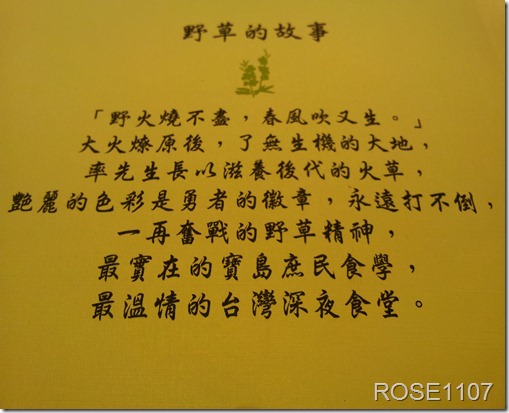 野草的故事
「野火燒不盡，春風吹又生。」
大火燎原後，了無生機的大地，
率先生長以滋養後代的火草，
艷麗的色彩是勇者的徽章，永遠打不倒，
一再奮戰的野草精神，
最實在的寶島庶民食學，
最溫情的台灣深夜食堂。
ROSE1107